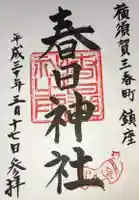 横須賀三春町鎮座
春日神社
平成三十年三月十七日参拝